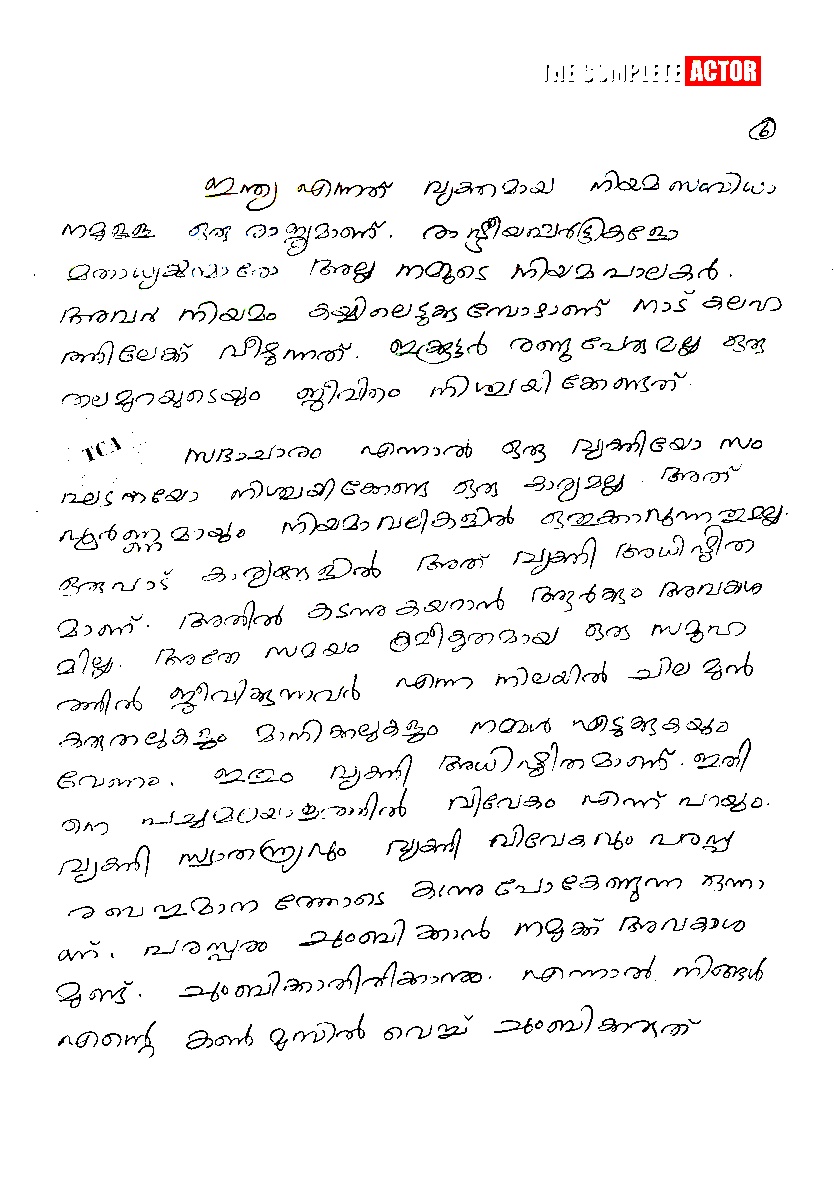 THE COMPLETE ACTOR
6
ഇന്ത്യ എന്നത് വ്യക്തമായ നിയമസംവിധാ
നമുള്ള ഒരു രാജ്യമാണ്. രാഷ്ട്രീയപാർട്ടികളോ
മതാധ്യക്ഷന്മാരോ അല്ല നമ്മുടെ നിയമപാലകർ.
അവർ നിയമം കയ്യിലെടുക്കുമ്പോഴാണ് നാട് കലഹ
ത്തിലേക്ക് വീഴുന്നത്. ഇക്കൂട്ടർ രണ്ടുപേരുമല്ല ഒരു
തലമുറയുടെയും ജീവിതം നിശ്ചയിക്കേണ്ടത്.
TCA സദാചാരം എന്നാൽ ഒരു വ്യക്തിയോ സം
ഘടനയോ നിശ്ചയിക്കേണ്ട ഒരു കാര്യമല്ല. അത്
പൂർണ്ണമായും നിയമാവലികളിൽ ഒതുക്കാവുന്നതുമല്ല.
ഒരുപാട് കാര്യങ്ങളിൽ അത് വ്യക്തി അധിഷ്ഠിത
മാണ്. അതിൽ കടന്നുകയറാൻ ആർക്കും അവകാശ
മില്ല. അതേ സമയം ക്രമീകൃതമായ ഒരു സമൂഹ
ത്തിൽ ജീവിക്കുന്നവർ എന്ന നിലയിൽ ചില മുൻ
കരുതലുകളും മാനിക്കലുകളും നമ്മൾ എടുക്കുകയും
വേണം. ഇതും വ്യക്തി അധിഷ്ഠിതമാണ്. ഇതി
നെ പച്ചമലയാളത്തിൽ വിവേകം എന്ന് പറയും.
വ്യക്തി സ്വാതന്ത്ര്യവും വ്യക്തി വിവേകവും പരസ്പ
രബഹുമാനത്തോടെ കൊണ്ടുപോകേണ്ടുന്ന ഒന്നാ
ണ്. പരസ്പരം ചുംബിക്കാൻ നമുക്ക് അവകാശ
മുണ്ട്. ചുംബിക്കാതിരിക്കാനും. എന്നാൽ നിങ്ങൾ
എന്റെ കൺമുമ്പിൽ വെച്ച് ചുംബിക്കരുത്